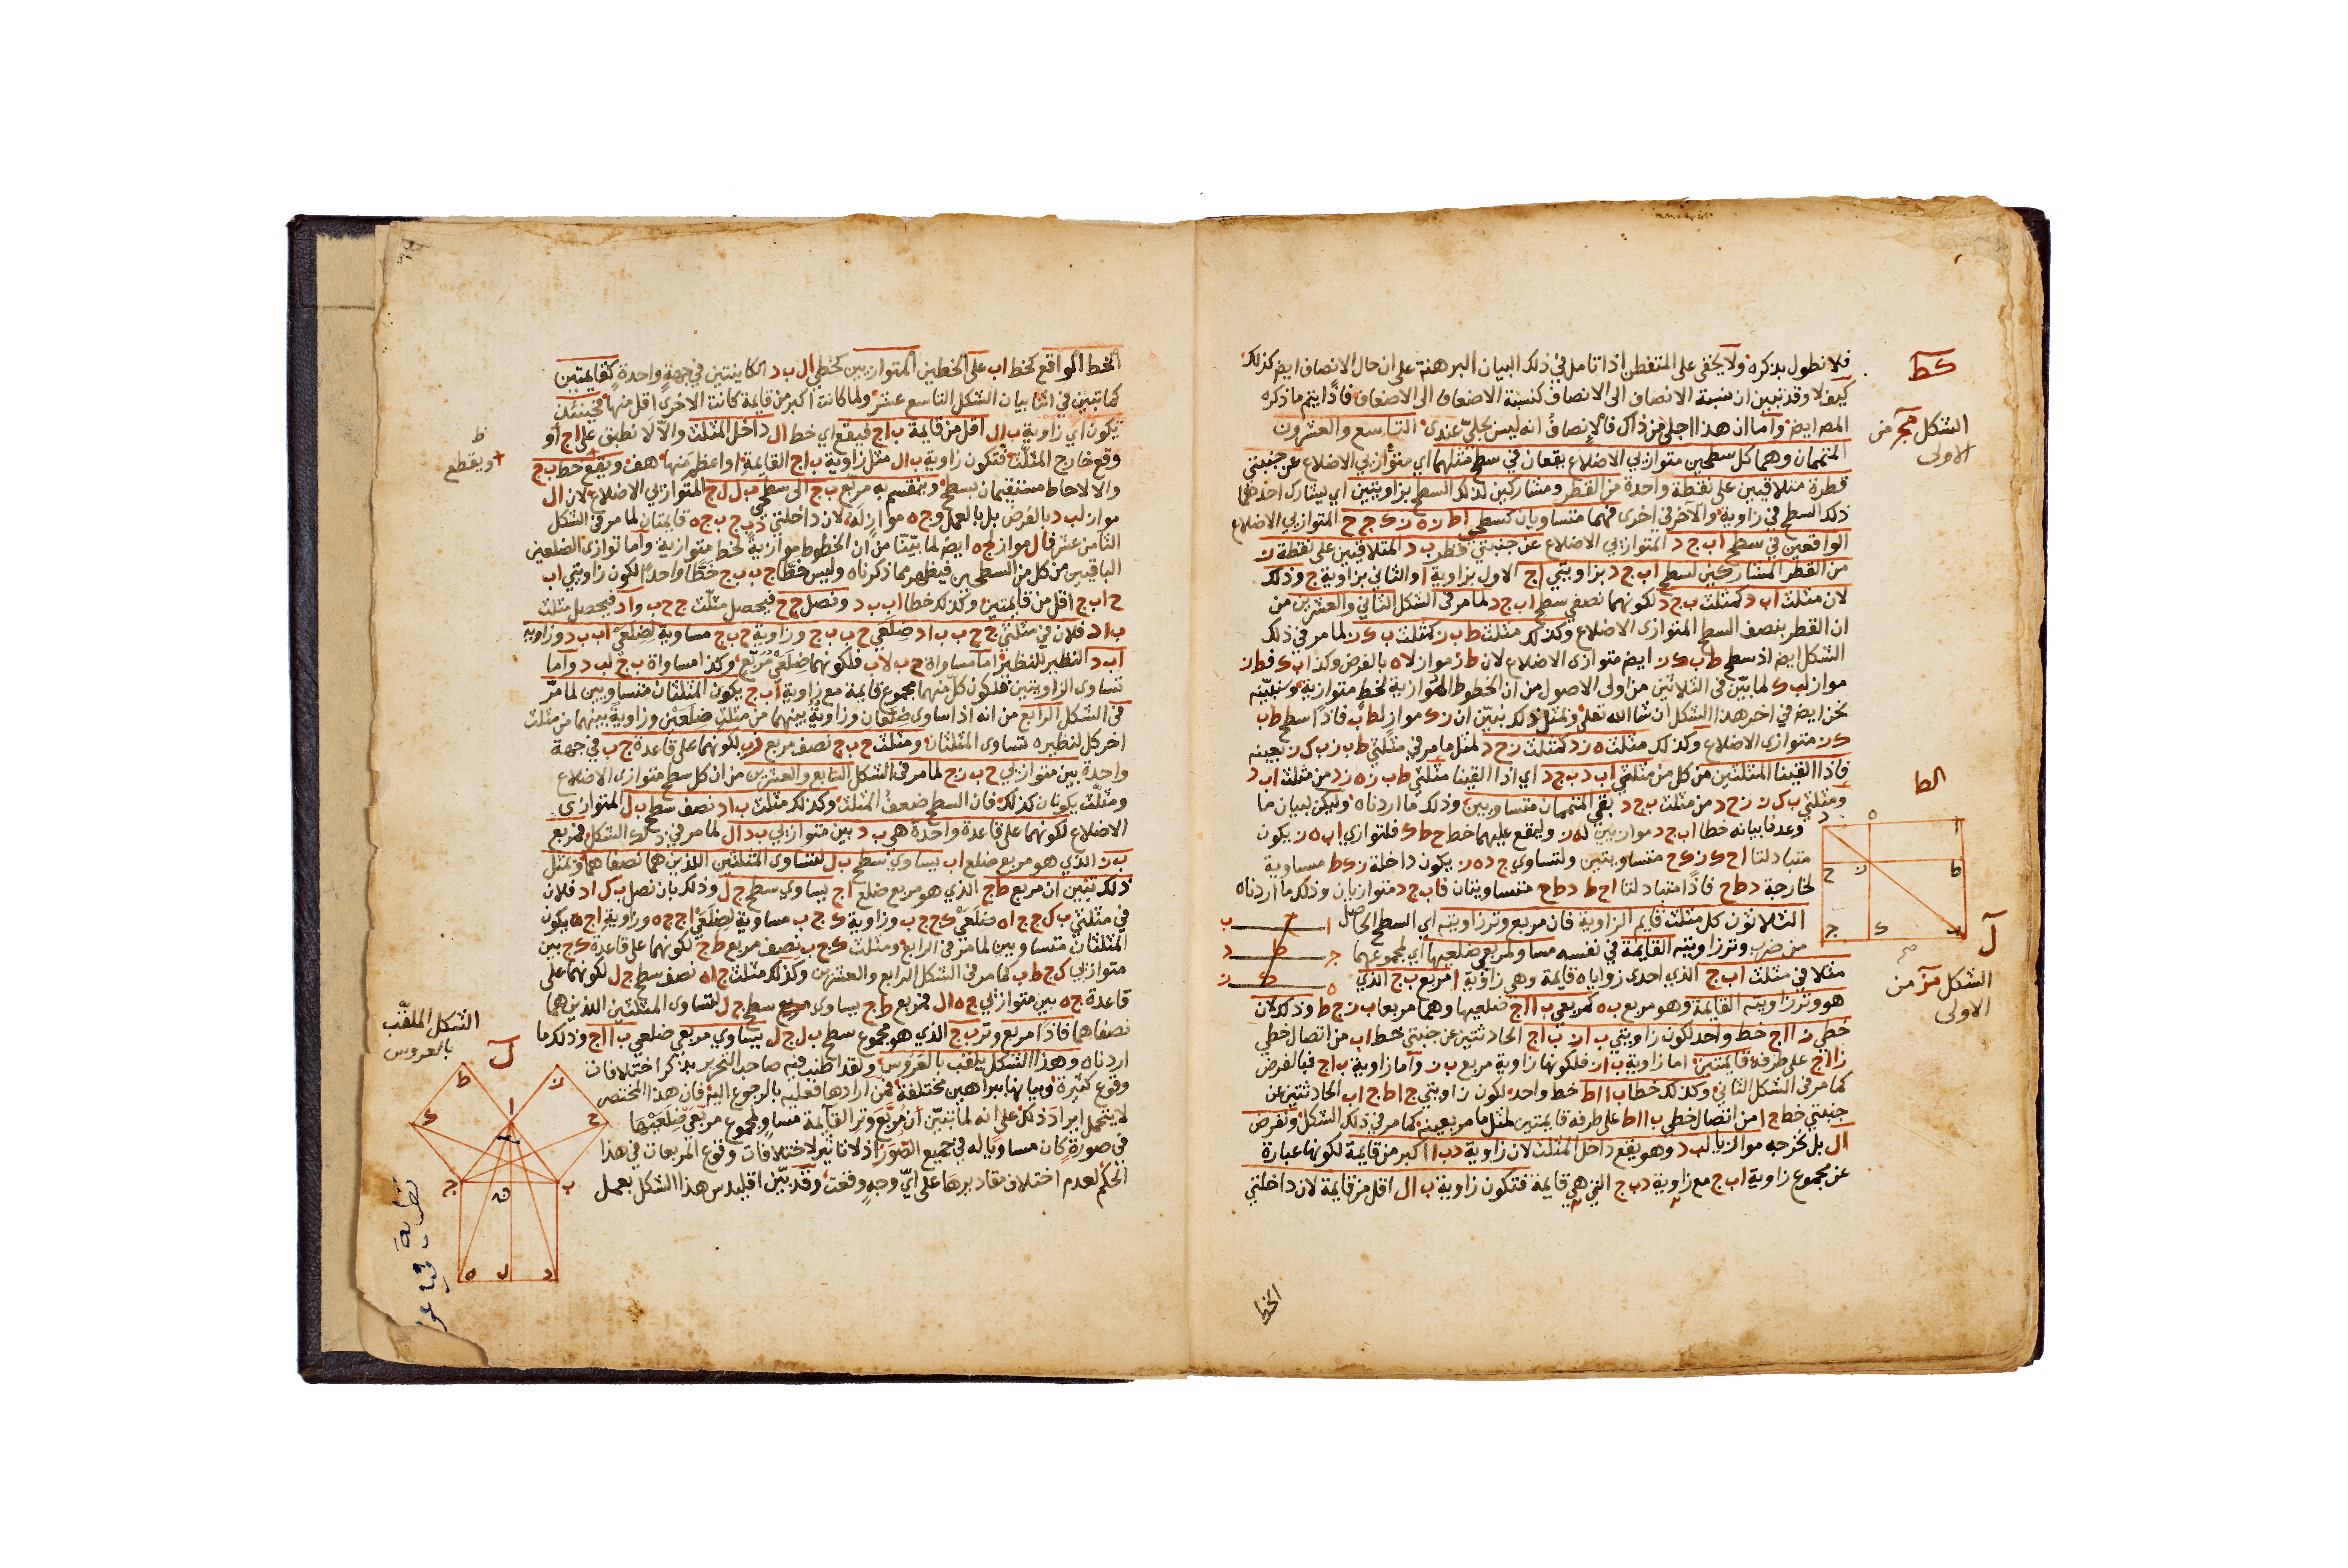 فلا نطول بذكره ولا يخفى على المتفطن اذا تامل في ذلك البيان البرهنة على ان حال الانصاف ايضا كذلك
كيف لا وقد تبين ان نسبة الانصاف الى الانصاف كنسبة الاضعاف الى الاضعاف فاذا يتم ما ذكره
المصه ايضا واما ان هذا اجلى من ذاك فالانصاف انه ليس بجلي عندى التاسع والعشرون
المتممان وهما كل سطحين متوازيي الاضلاع يقعان في سطح مثلهما اي متوازيي الاضلاع عن جنبتي
قطره متلاقيين على نقطة واحدة من القطر ومشاركين لذلك السطح بزاويتين اي يشارك احدهما
ذلك السطح في زاوية والآخر في اخرى فهما متساويان كسطحي ا ط ز ه ز ك ج ح المتوازيي الاضلاع
الواقعين في سطح اب ج د المتوازيي الاضلاع عن جنبتي قطر ب د المتلاقيين على نقطة ز
من القطر المشاركين لسطح اب ج د بزاويتي ا ج الاول بزاوية ا والثاني بزاوية ج وذلك
لان مثلث اب د كمثلث ب ج د لكونهما نصفي سطح اب ج د لما مر في الشكل الثاني والعشرين من
ان القطر ينصف السطح المتوازى الاضلاع وكذلك مثلث ط ب ز كمثلث ب ك ز لما مر في ذلك
الشكل ايضا اذ سطح ط ب ك ز ايضا متوازى الاضلاع لان ط ز مواز لا ه بالفرض وكذا ب ك فط ز
مواز لب ك لما بين في الثلاثين من اولى الاصول من ان الخطوط الموازية لخط متوازية وسنبينه
نحن ايضا في اخر هذا الشكل ان شا الله تعلى ولمثل ذلك نبين ان ز ك مواز لط ب فاذا سطح ط ب
ك ز متوازى الاضلاع وكذلك مثلث ه ز د كمثلث ز ح د لمثل ما مر في مثلثي ط ب ز ب ك ز بعينه
فاذا القينا المثلثين من كل من مثلثي اب د ب ج د اي اذا القينا مثلثي ط ب ز ه ز د من مثلث اب د
ومثلثي ب ك ز ز ح د من مثلث ب ج د بقي المتممان متساويين وذلك ما اردناه وليكن لبيان ما
وعدنا بيانه خطا اب ج د موازيين له ز وليقع عليهما خط ح ط ك فلتوازي اب ه ز يكون
متبادلتا ا ح ك ز ك ح متساويتين ولتساوي ج د ه ز يكون داخلة ز ك ط مساوية
لخارجة د ط ح فاذا متبادلتا ا ح ط د ط ح متساويتان فاب ج د متوازيان وذلك ما اردناه
الثلاثون كل مثلث قايم الزاوية فان مربع وتر زاويته اي السطح الحاصل
من ضرب وتر زاويته القايمة في نفسه مساو لمربعي ضلعيها اي لمجموعهما
مثلا في مثلث اب ج الذي احدى زواياه قايمة وهي زاوية ا مربع ب ج الذي
هو وتر زاويته القايمة وهو مربع ب ه كمربعي ب ا ا ج ضلعيها وهما مربعا ب ز ج ط وذلك لان
خطي ز ا ا ج خط واحد لكون زاويتي ب ا ز ب ا ج الحادثتين عن جنبتي خط اب من اتصال خطي
ز ا ا ج على طرفه قايمتين اما زاوية ب ا ز فلكونها زاوية مربع ب ز واما زاوية ب ا ج فبالفرض
كما مر في الشكل الثاني وكذلك خطا ب ا ا ط خط واحد لكون زاويتي ج ا ط ج اب الحادثتين عن
جنبتي خط ج ا من اتصال خطي ب ا ا ط على طرفه قايمتين لمثل ما مر بعينه كما مر في ذلك الشكل ونفرض
ال بل نخرجه موازيا لب د وهو يقع داخل المثلث لان زاوية د ب ا اكبر من قايمة لكونها عبارة
عن مجموع زاوية اب ج مع زاوية د ب ج التي هي قايمة فتكون زاوية ب ال اقل من قايمة لان داخلتي
الخط
كط
الشكل مج من
الاولى
الط
ل
الشكل مز من
الاولى
الخط الواقع كخط اب على الخطين المتوازيين كخطي ال ب د الكاينتين في جهة واحدة كقايمتين
كما تبين في اثنا بيان الشكل التاسع عشر ولما كانت اكبر من قايمة كانت الاخرى اقل منها فحينئذ
تكون اي زاوية ب ال اقل من قايمة ب ا ج فيقع اي خط ال داخل المثلث والا لا نطبق على ا ج او
وقع خارج المثلث فتكون زاوية ب ال مثل زاوية ب ا ج القايمة او اعظم منها هف ويقع خط ب ج
والا لاحاط مستقيمان بسطح وينقسم به مربع ب ج الى سطحي ب ل ل ج المتوازيي الاضلاع لان ال
مواز لب د بالفرض بل بالعمل وج ه مواز له لان داخلتي د ب ج ب ج ه قايمتان لما مر في الشكل
الثامن عشر فال مواز لج ه ايضا لما بينا من ان الخطوط موازية لخط متوازية واما توازى الضلعين
الباقيين من كل من السطحين فيظهر مما ذكرناه وليس خطا ح ب ب ج خطا واحدا لكون زاويتي اب
ح اب ج اقل من قايمتين وكذلك خطا اب ب د ونصل ج ح فيحصل مثلث ج ح ب وا د فيحصل مثلث
ب ا د فلان في مثلثي ج ح ب ب ا د ضلعي ح ب ب ج وزاوية ح ب ج مساوية لضلعي اب ب د وزاوية
اب د النظير للنظير اما مساواة ح ب لاب فلكونهما ضلعي مربع وكذا مساواة ب ج لب د واما
تساوى الزاويتين فلكون كل منهما مجموع قايمة مع زاوية اب ج يكون المثلثان متساويين لما مر
في الشكل الرابع من انه اذا ساوى ضلعان وزاوية بينهما من مثلث ضلعين وزاوية بينهما من مثلث
اخر كل لنظيره تساوى المثلثان ومثلث ح ب ج نصف مربع ز ب لكونهما على قاعدة ح ب في جهة
واحدة بين متوازيي ح ب ز ج لما مر في الشكل السابع والعشرين من ان كل سطح متوازى الاضلاع
ومثلث يكونان كذلك فان السطح ضعف المثلث وكذلك مثلث ب ا د نصف سطح ب ل المتوازى
الاضلاع لكونهما على قاعدة واحدة هي ب د بين متوازيي ب د ال لما مر في ذلك الشكل فمربع
ب ز الذي هو مربع ضلع اب يساوي سطح ب ل لتساوى المثلثين اللذين هما نصفا هما وبمثل
ذلك تبين ان مربع ط ج الذي هو مربع ضلع ا ج يساوي سطح ج ل وذلك بان نصل ب ك ا ه فلان
في مثلثي ب ك ج ج ا ه ضلعي ك ج ج ب وزاوية ك ج ب مساوية لضلعي ا ج ج ه وزاوية ا ج ه يكون
المثلثان متساويين لما مر في الرابع ومثلث ك ج ب نصف مربع ط ج لكونهما على قاعدة ك ج بين
متوازيي ك ج ط ب كما مر في الشكل الرابع والعشرين وكذلك مثلث ج ا ه نصف سطح ج ل لكونهما على
قاعدة ج ه بين متوازيي ج ه ال فمربع ط ج يساوى سطح ج ل لتساوى المثلثين اللذين هما
نصفاهما فاذا مربع وتر ب ج الذي هو مجموع سطحي ب ل ج ل يساوي مربعي ضلعي ب ا ا ج وذلك ما
اردناه وهذا الشكل يلقب بالعروس ولقد اطنب فيه صاحب التحرير بذكر اختلافات
وقوع كثيرة وبيانها ببراهين مختلفة فمن ارادها فعليه بالرجوع اليه فان هذا المختصر
لا يتحمل ايراد ذلك على انه لما تبين ان مربع وتر القايمة مساو لمجموع مربعي ضلعيها
في صورة كان مساويا له في جميع الصور اذ لا تاثير لاختلافات وقوع المربعات في هذا
الحكم لعدم اختلاف مقاديرها على اي وجه وقعت وقد بين اقليدس هذا الشكل بعمل
ويقطع
الشكل الملقب
بالعروس
ل